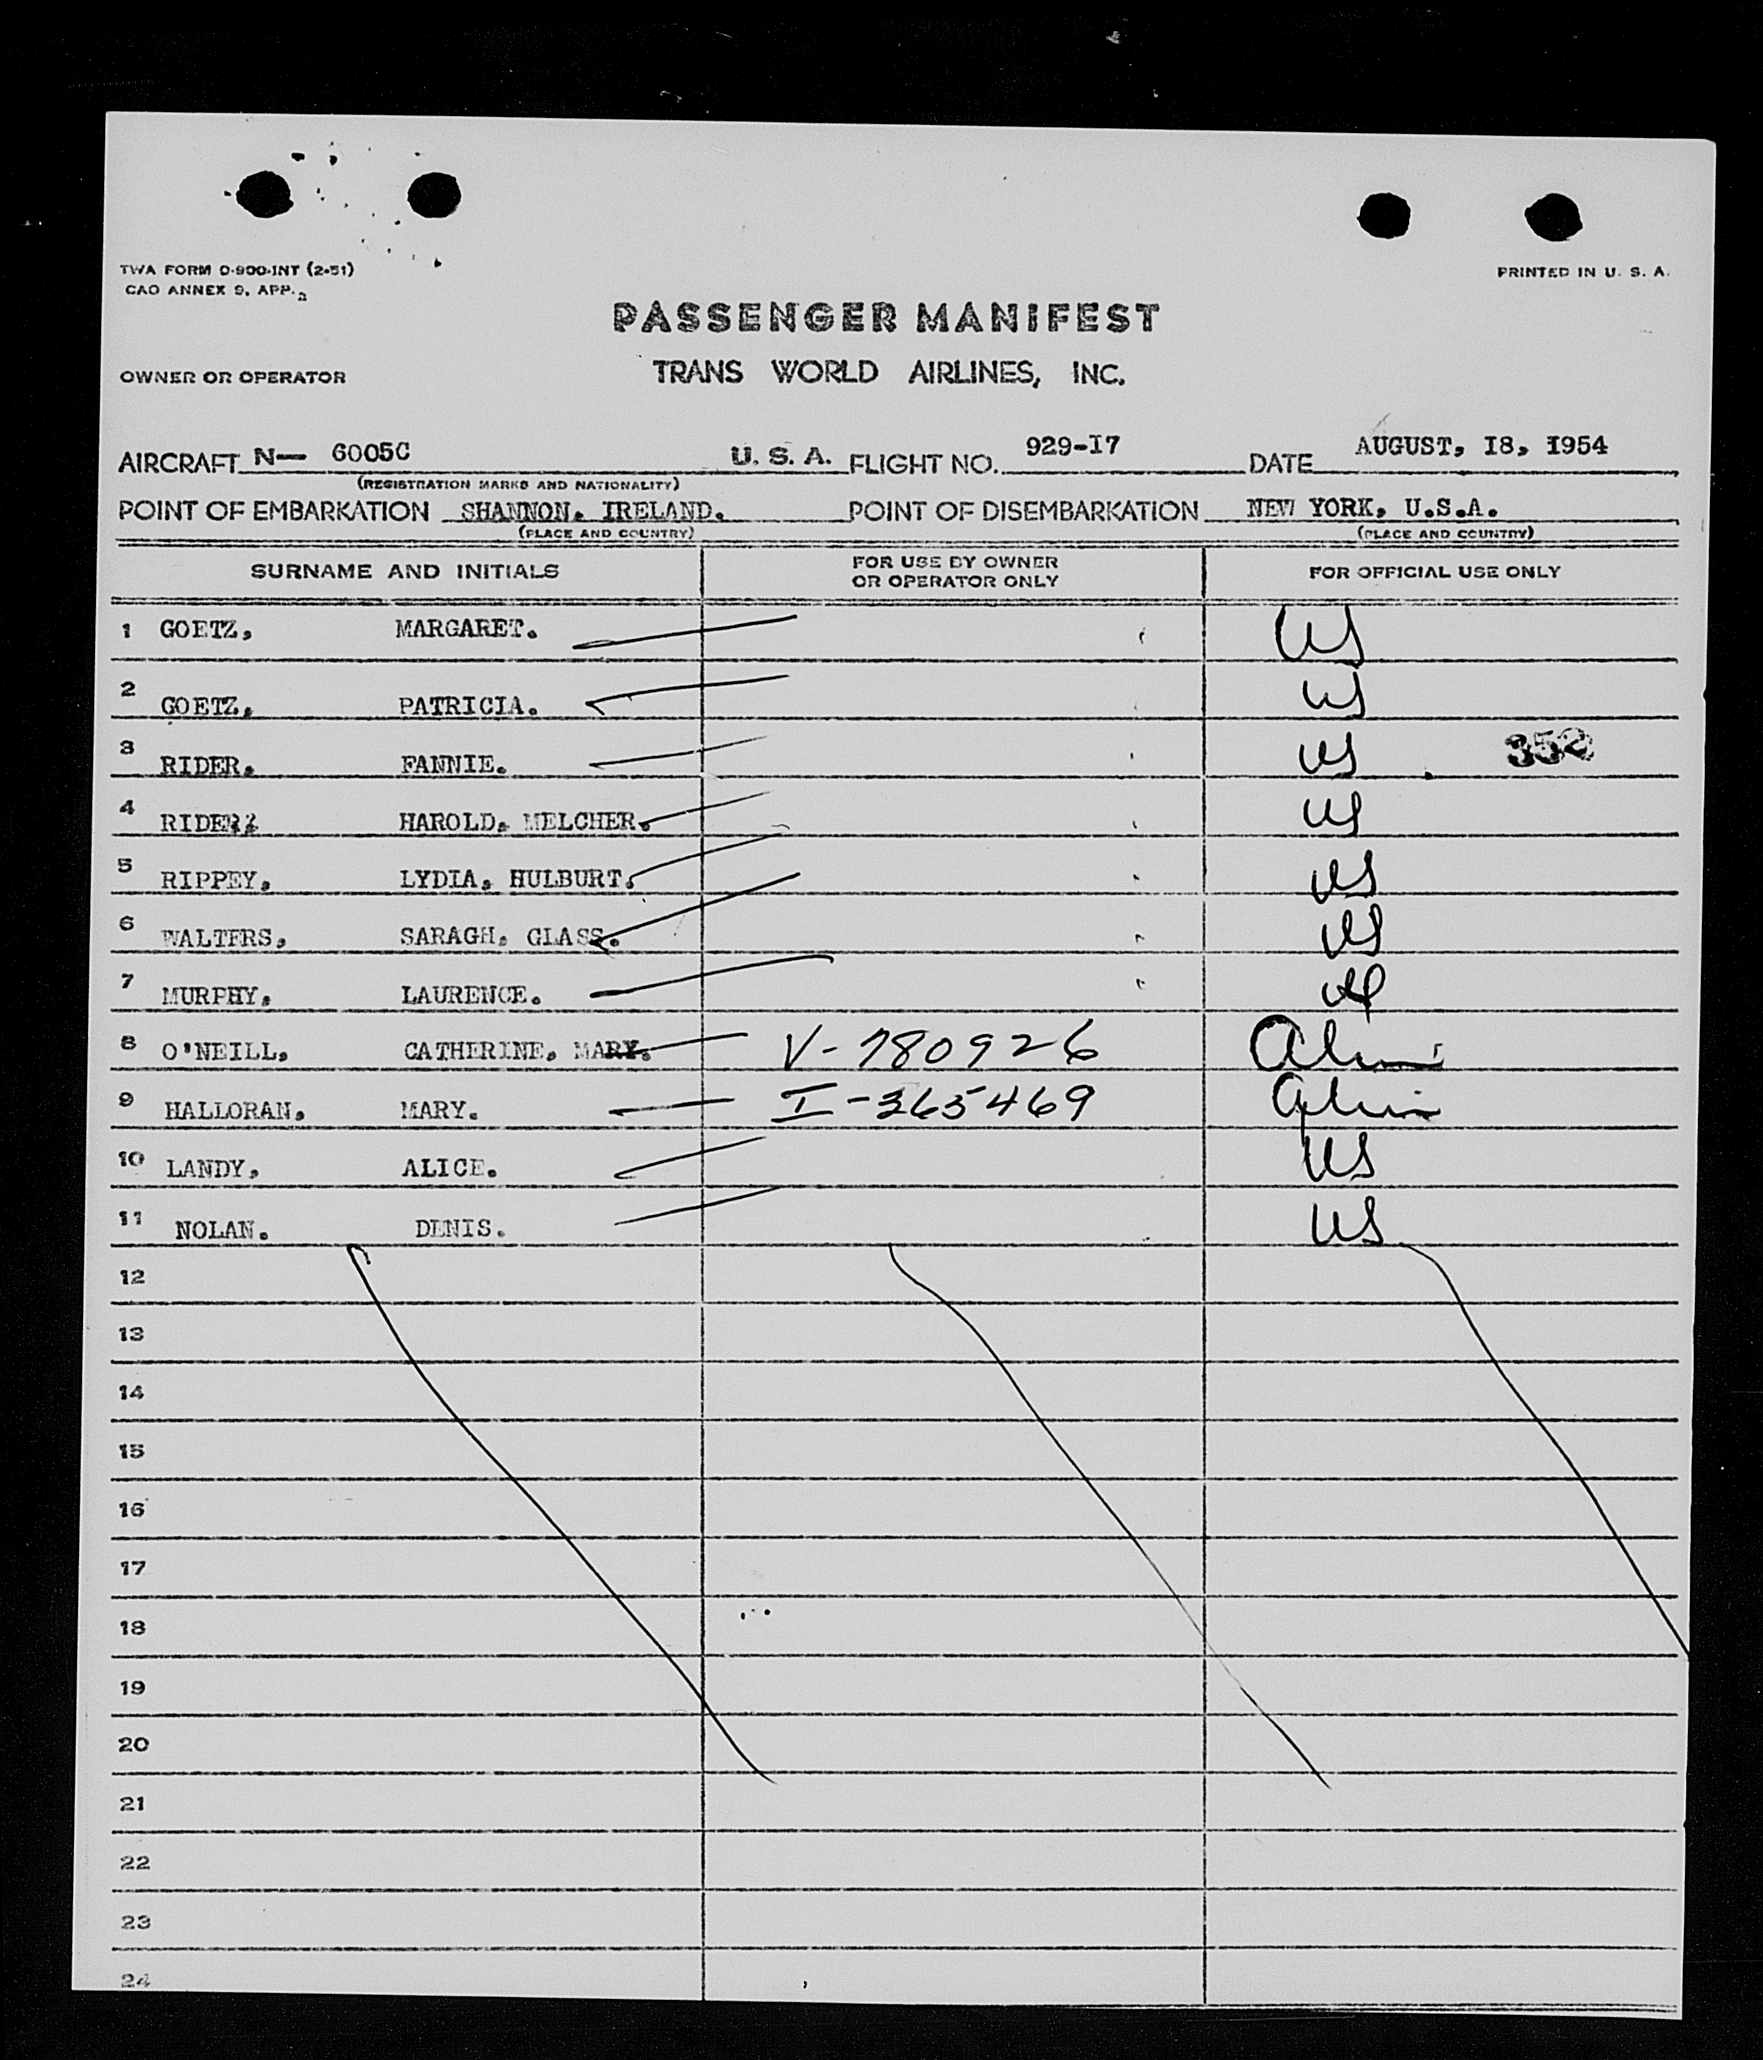 TWA FORM O-900-INT (2-51)
CAO ANNEX 9, APP. 2
PRINTED IN U. S. A.
PASSENGER MANIFEST
OWNER OR OPERATOR TRANS WORLD AIRLINES, INC.
AIRCRAFT N— 6005C U. S. A. FLIGHT NO. 929-I7 DATE AUGUST, I8, I954
(REGISTRATION MARKS AND NATIONALITY)
POINT OF EMBARKATION SHANNON. IRELAND. POINT OF DISEMBARKATION NEW YORK, U.S.A.
(PLACE AND COUNTRY) (PLACE AND COUNTRY)
SURNAME AND INITIALS FOR USE BY OWNER OR OPERATOR ONLY FOR OFFICIAL USE ONLY
1 GOETZ, MARGARET. US
2 GOETZ, PATRICIA. US
3 RIDER. FANNIE. US 352
4 RIDER. HAROLD. MELCHER. US
5 RIPPEY, LYDIA, HULBURT. US
6 WALTERS, SARAGH. GLASS. US
7 MURPHY, LAURENCE. US
8 O'NEILL, CATHERINE, MARY. V-780926 Alien
9 HALLORAN, MARY. I-365469 Alien
10 LANDY, ALICE. US
11 NOLAN. DENIS. US
12
13
14
15
16
17
18
19
20
21
22
23
24